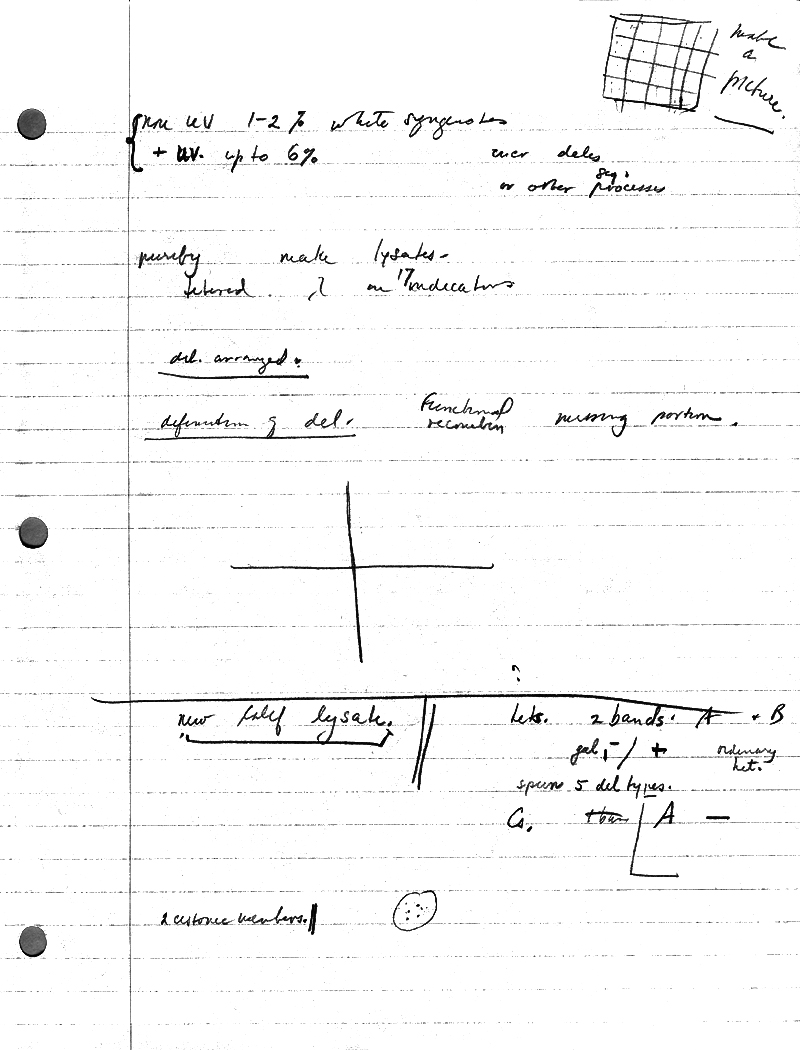 make
a
picture.
non UV 1-2% white syngenotes
+ UV. up to 6%
dels
seg.
or other processes
purify make lysates-
λ on 17 indicators
del. arranged.
definition of del.
Functional
missing portion.
?
new lysate.
hets. 2 bands. A + B
gal - / + ordinary
het.
5 del types.
Cs. A —
members.